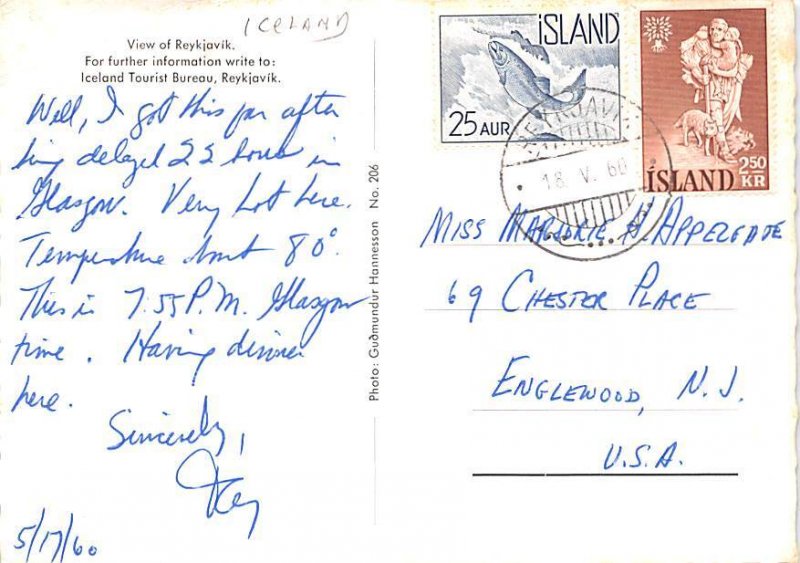 ICELAND
View of Reykjavík.
For further information write to:
Iceland Tourist Bureau, Reykjavík.
Well, I got this far after
being delayed 22 hours in
Glasgow. Very hot here.
Temperature about 80°.
This is 7.55 P.M. Glasgow
time. Having dinner
here.
Sincerely,
5/17/60
Photo: Guðmundur Hannesson No. 206
ÍSLAND
25 AUR
2.50
ÍSLAND KR
REYKJAVÍK
18. V. 60
MISS MARJORIE H. APPELGATE
69 CHESTER PLACE
ENGLEWOOD, N.J.
U.S.A.